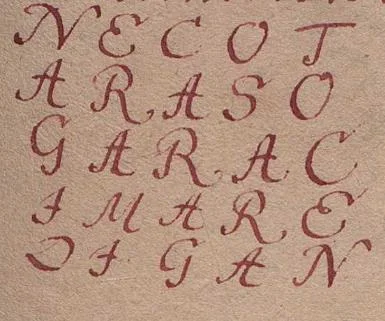 N E C O T
A R A S O
G A R A C
I M A R E
D I G A N